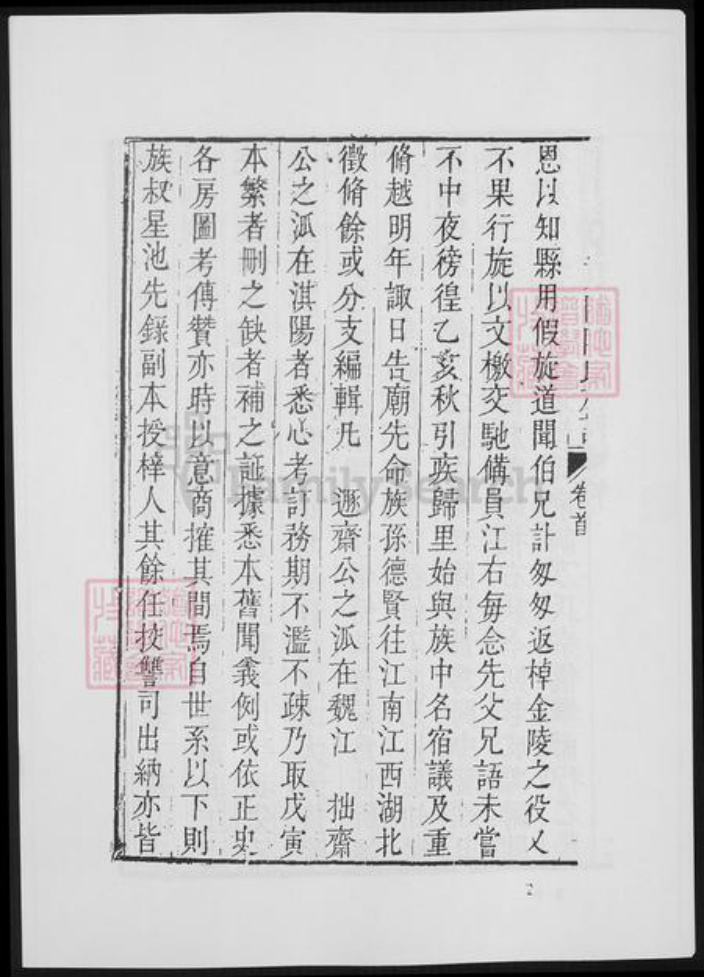 卷首
恩以知縣用假旋道聞伯兄訃匆匆返棹金陵之役乂
不果行旋以文檄交馳備員江右每念先父兄語未嘗
不中夜徬徨乙亥秋引疾歸里始與族中名宿議及重
脩越明年諏日告廟先命族孫德賢往江南江西湖北
徵脩餘或分支編輯凡 遯齋公之派在魏江 拙齋
公之派在淇陽者悉心考訂務期不濫不疎乃取戊寅
本繁者刪之缺者補之証據悉本舊聞義例或依正史
各房圖考傳贊亦時以意商搉其間焉自世系以下則
族叔星池先錄副本授梓人其餘任挍讐司出納亦皆
FamilySearch
2